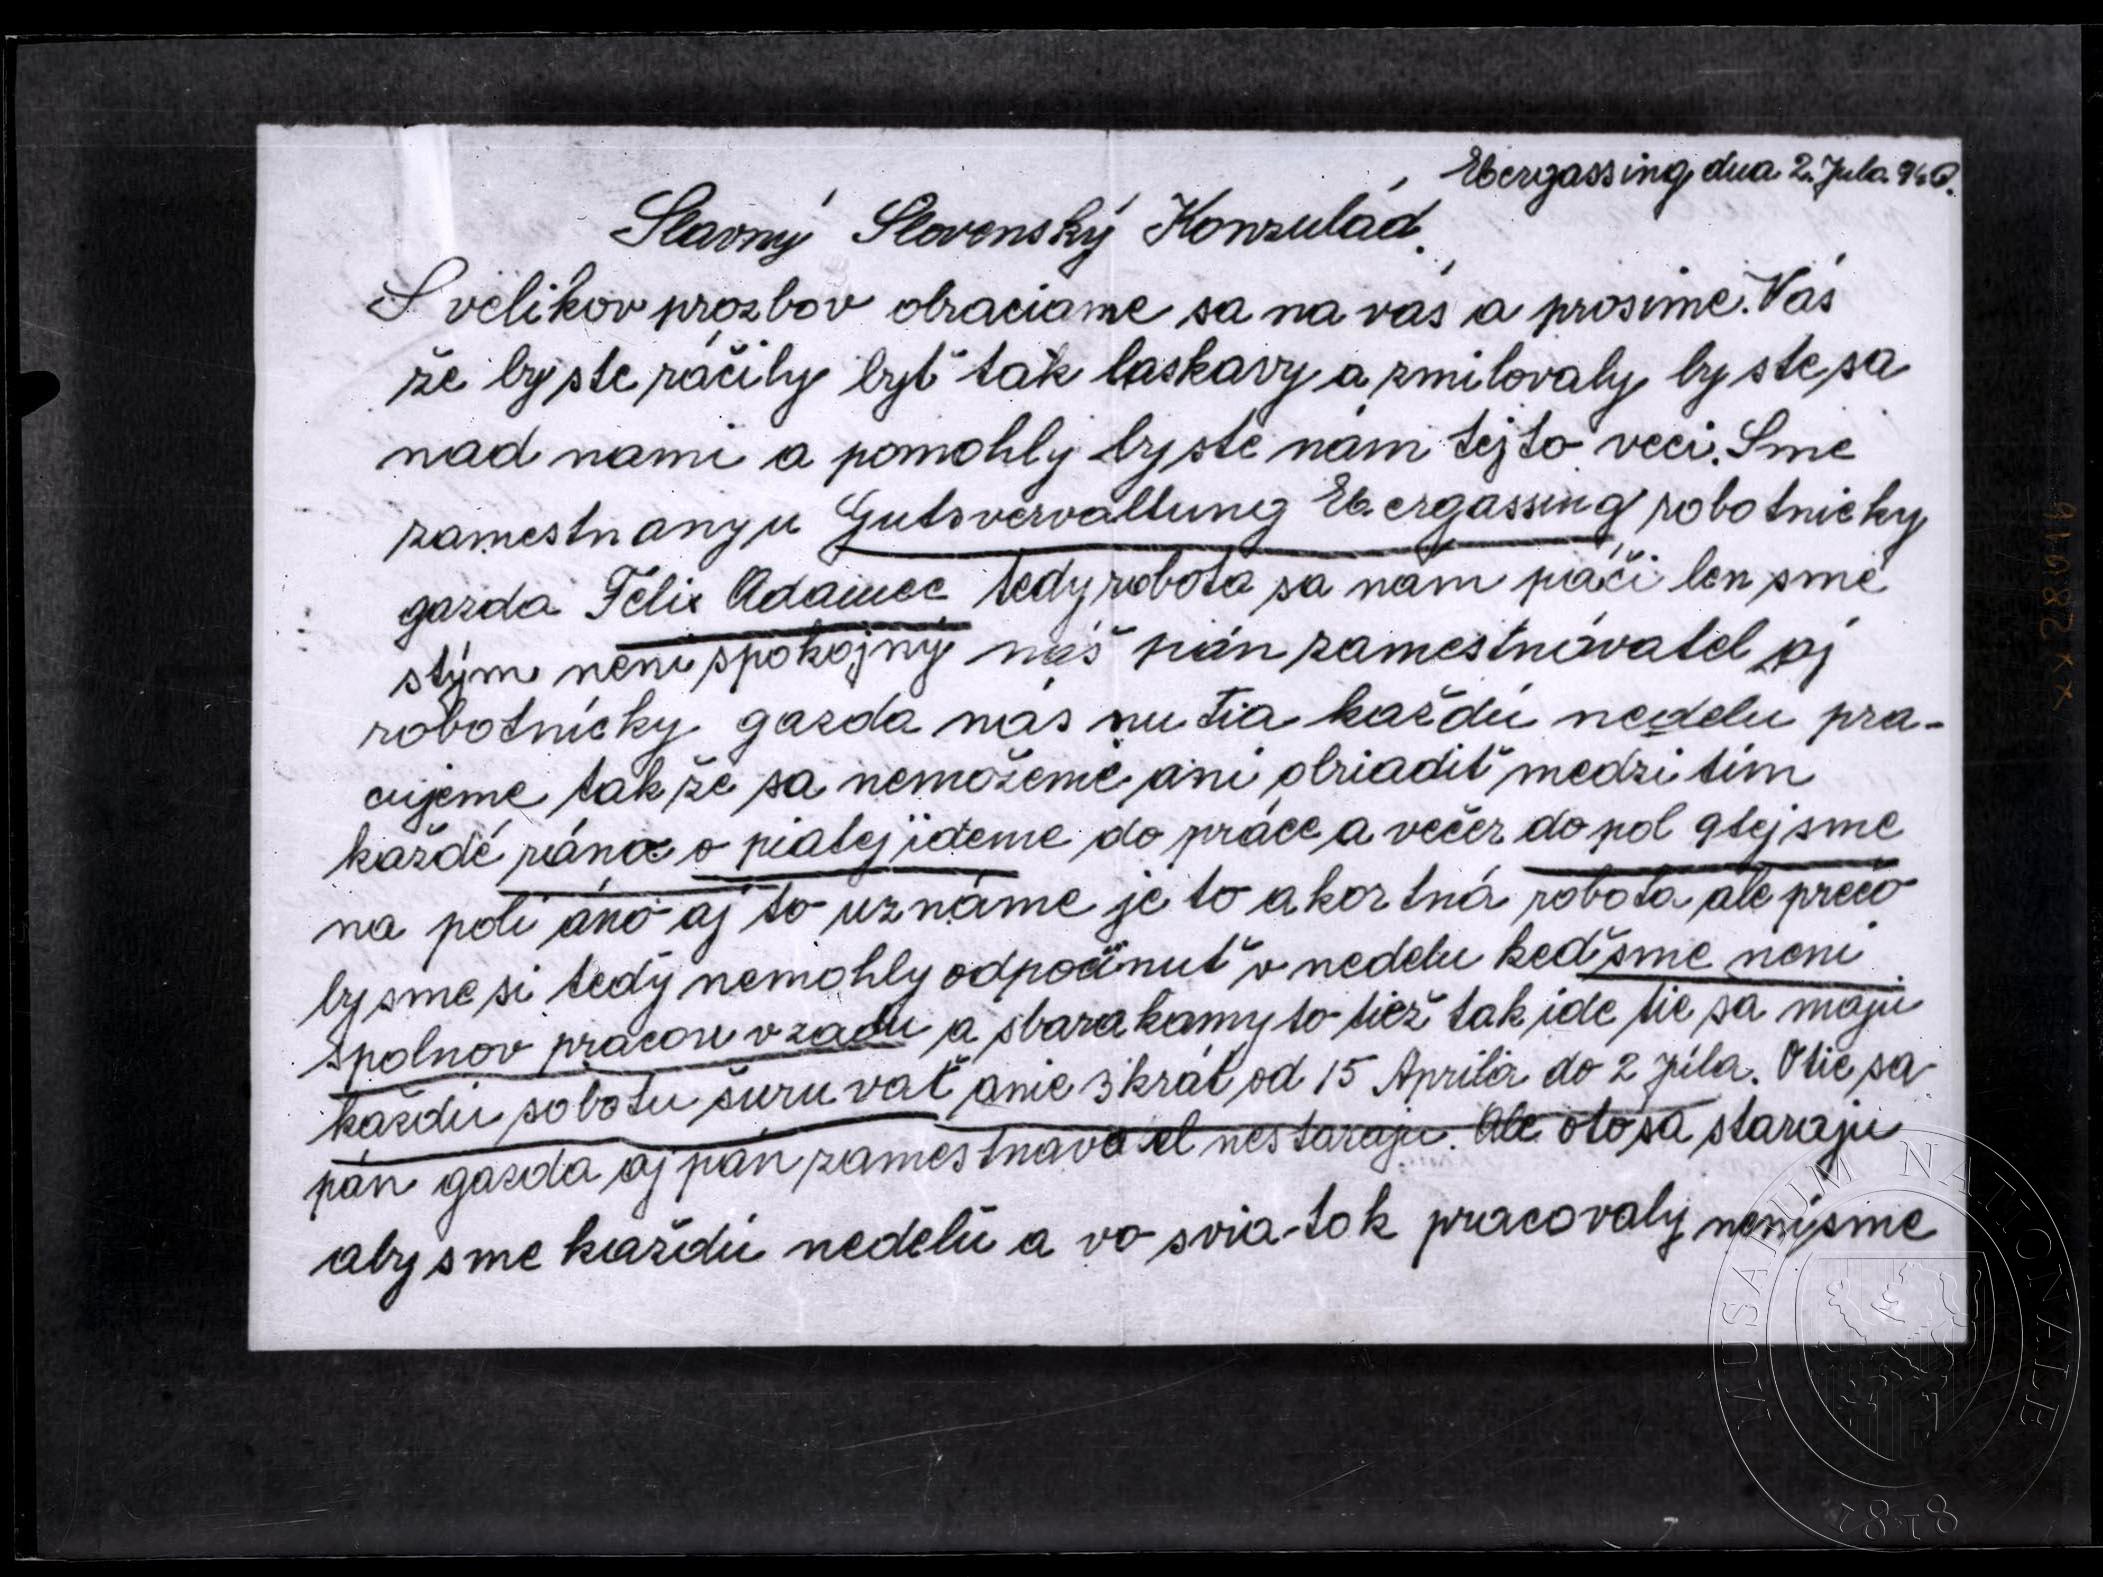 Ebergassing, dna 2. Jula 940.
Slavný Slovenský Konzulád.
S velikov prozbov obraciame sa na vás a prosime. Vás
že by ste ráčily byť tak laskavy a zmilovaly by ste sa
nad nami a pomohly by ste nám tejto veci. Sme
zamestnany u Gutsvervaltung Ebergassing robotnicky
gazda Felix Adamec tedy robota sa nám páči len sme
stým neni spokojný náš pán zamestnávatel aj
robotnícky gazda nás nu tia každú nedelu pra-
cujeme tak že sa nemožeme ani obriadiť medzi tim
každé ráno o piatej ideme do práce a večer do pol 9tej sme
na poli áno aj to uznáme je to akortná robota ale prečo
by sme si tedy nemohly odpočinuť v nedelu keď sme neni
spolnov pracou vzadu a sbarakamy to tiež tak ide tie sa maju
každú sobotu šuruvať anie 3 krát od 15 Aprila do 2 Júla. Otie sa
pán gazda aj pán zamestnavatel nestaraju. Ale oto sa staraju
aby sme každú nedelu a vo sviatok pracovaly neni sme
XX 28916
MUSAEUM NATIONALE
1818